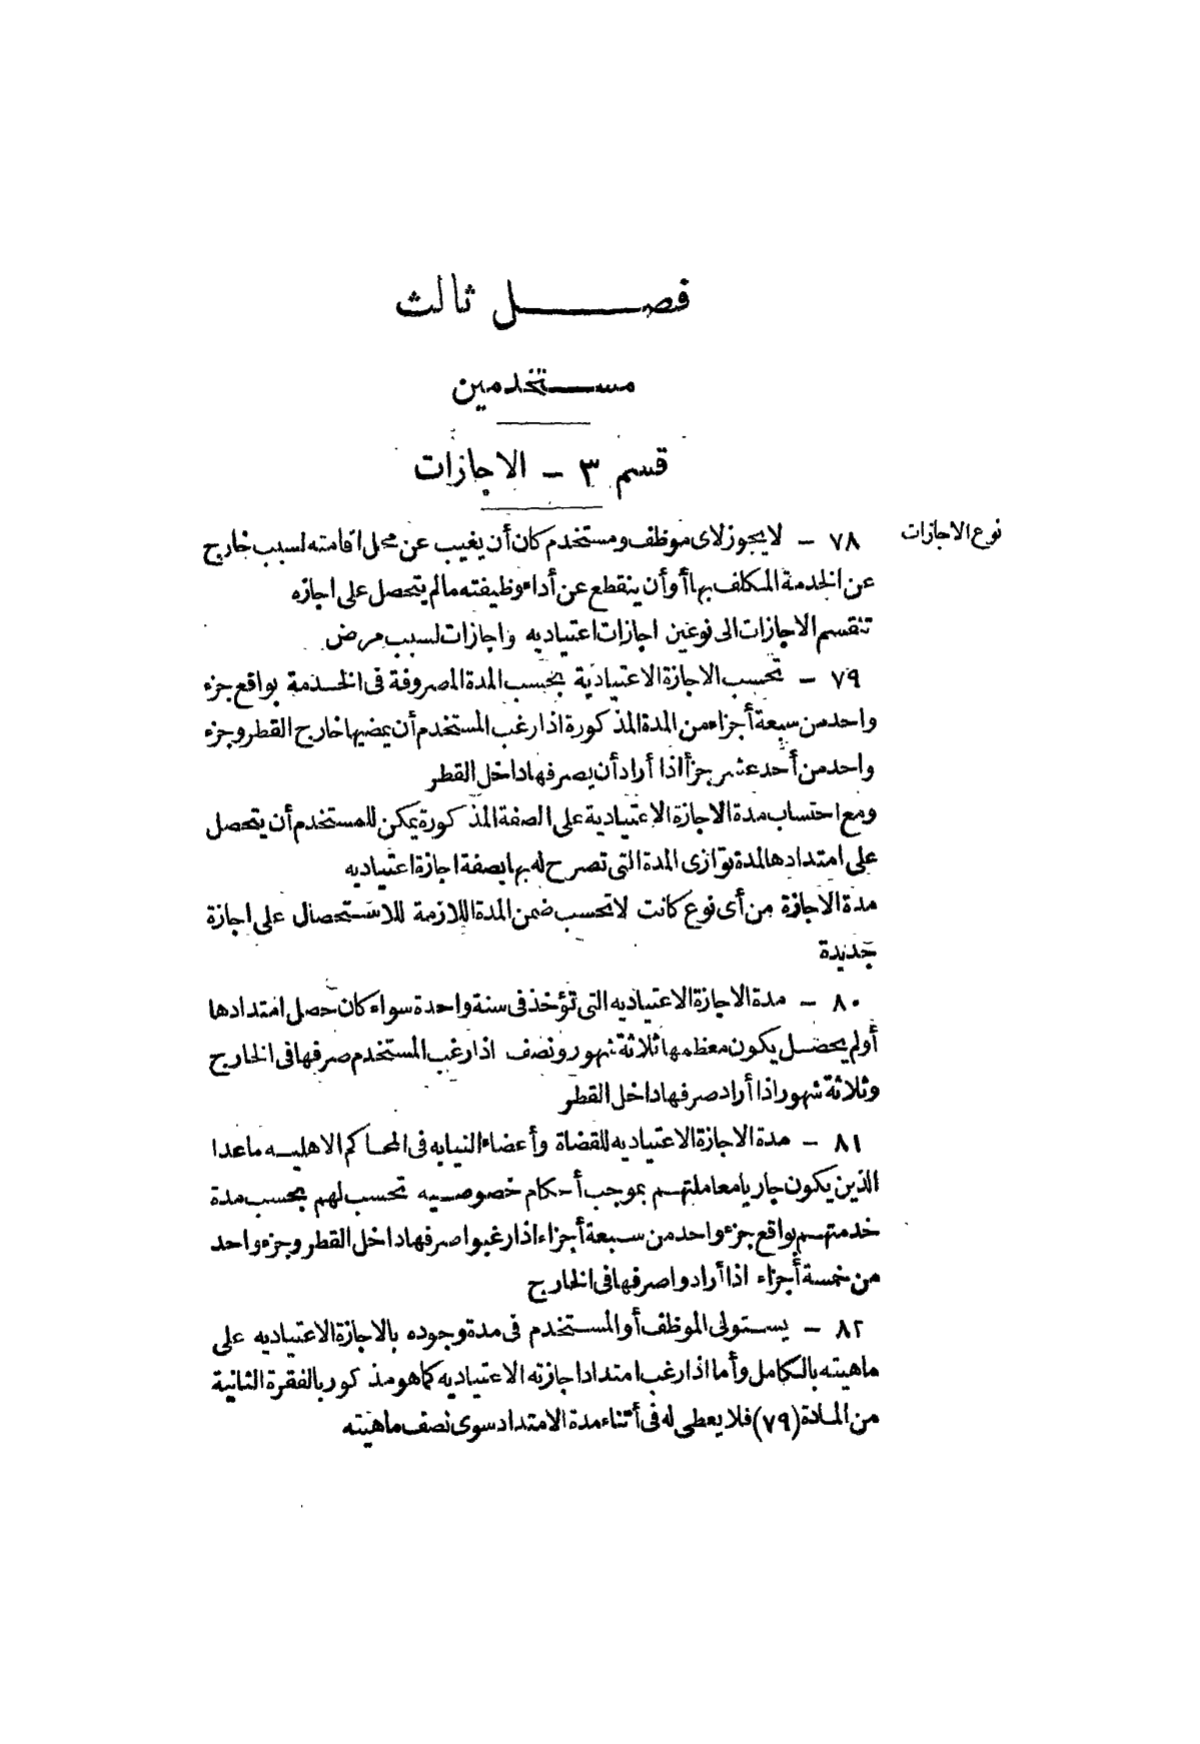 فصل ثالث
مستخدمين
قسم ٣ – الاجازات
نوع الاجازات
٧٨ – لا يجوز لاى موظف ومستخدم كان أن يغيب عن محل اقامته لسبب خارج
عن الخدمة المكلف بها أو أن ينقطع عن أداء وظيفته مالم يتحصل على اجازه
تنقسم الاجازات الى نوعين اجازات اعتياديه واجازات لسبب مرض
٧٩ – تحسب الاجازة الاعتيادية بحسب المدة المصروفة فى الخدمة بواقع جزء
واحد من سبعة أجزاء من المدة المذكورة اذا رغب المستخدم أن يمضيها خارج القطر وجزء
واحد من أحد عشر جزأ اذا أراد أن يصرفها داخل القطر
ومع احتساب مدة الاجازة الاعتيادية على الصفة المذكورة يمكن للمستخدم أن يتحصل
على امتدادها لمدة توازى المدة التى تصرح له بها بصفة اجازة اعتياديه
مدة الاجازة من أى نوع كانت لا تحسب ضمن المدة اللازمة للاستحصال على اجازة
جديدة
٨٠ – مدة الاجازة الاعتياديه التى تؤخذ فى سنة واحدة سواء كان حصل امتدادها
أو لم يحصل يكون معظمها ثلاثة شهور ونصف اذا رغب المستخدم صرفها فى الخارج
وثلاثة شهور اذا أراد صرفها داخل القطر
٨١ – مدة الاجازة الاعتياديه للقضاة وأعضاء النيابه فى المحاكم الاهليه ماعدا
الذين يكون جاريا معاملتهم بموجب أحكام خصوصيه تحسب لهم بحسب مدة
خدمتهم بواقع جزء واحد من سبعة أجزاء اذا رغبوا صرفها داخل القطر وجزء واحد
من خمسة أجزاء اذا أرادوا صرفها فى الخارج
٨٢ – يستولى الموظف أو المستخدم فى مدة وجوده بالاجازة الاعتياديه على
ماهيته بالكامل وأما اذا رغب امتداد اجازته الاعتياديه كما هو مذكور بالفقرة الثانية
من المادة (٧٩) فلا يعطى له فى أثناء مدة الامتداد سوى نصف ماهيته